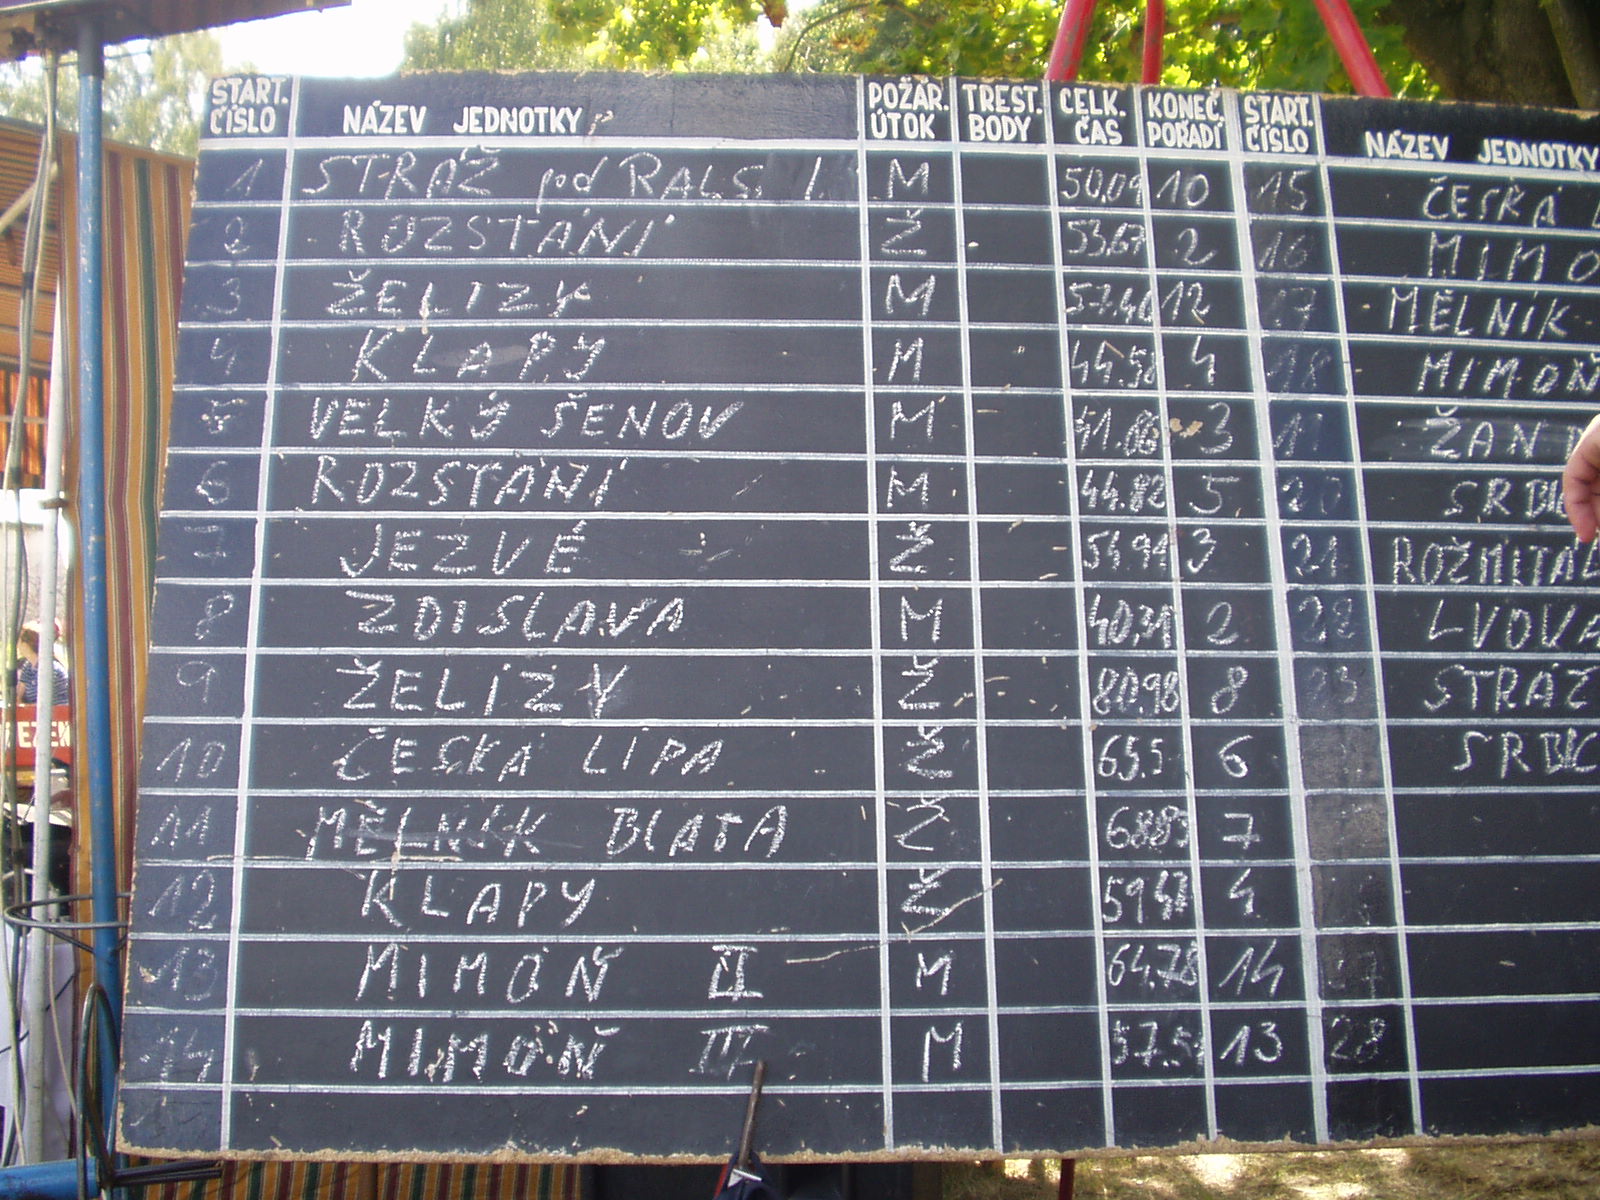 START. ČÍSLO NÁZEV JEDNOTKY POŽÁR. ÚTOK TREST. BODY CELK. ČAS KONEČ. POŘADÍ START. ČÍSLO NÁZEV JEDNOTKY
1 STRÁŽ pod RALS. I. M 50,09 10 15 ČESKÁ
2 ROZSTÁNÍ Ž 53,67 2 16 MIMO
3 ŽELIZY M 57.46 12 17 MĚLNÍK
4 KLAPY M 44.58 4 18 MIMOŇ
5 VELKÝ ŠENOV M 41.86 3 ŽAN
6 ROZSTÁNÍ M 44.82 5 20 SRB
7 JEZVÉ Ž 54.91 3 21 ROŽMITAL
8 ZDISLAVA M 40,31 2 22 LVOVA
9 ŽELIZY Ž 80.98 8 23 STRÁŽ
10 ČESKÁ LÍPA Ž 65.5 6 SRBIC
11 MĚLNÍK BLATA Ž 68.83 7
12 KLAPY Ž 59.47 4
13 MIMOŇ II M 64.78 14
14 MIMOŇ III M 57.51 13 28
EZEN